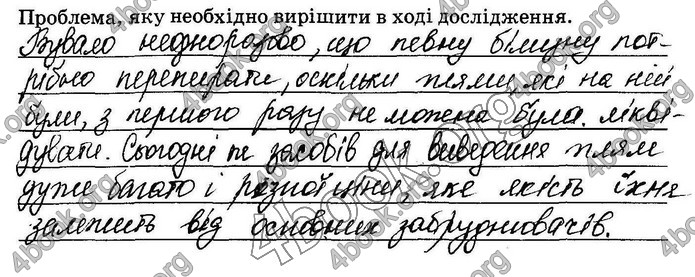 Проблема, яку необхідно вирішити в ході дослідження.
Бувало неодноразово, що певну білизну пот-
рібно перепирати, оскільки плями, які на ній
були, з першого разу не можена була ліkві-
дувати. Сьогодні засобів для виведення плям
дуже багато і різної ціни, яке якість їхня
залежить від основних забруднювачів.
4book.org